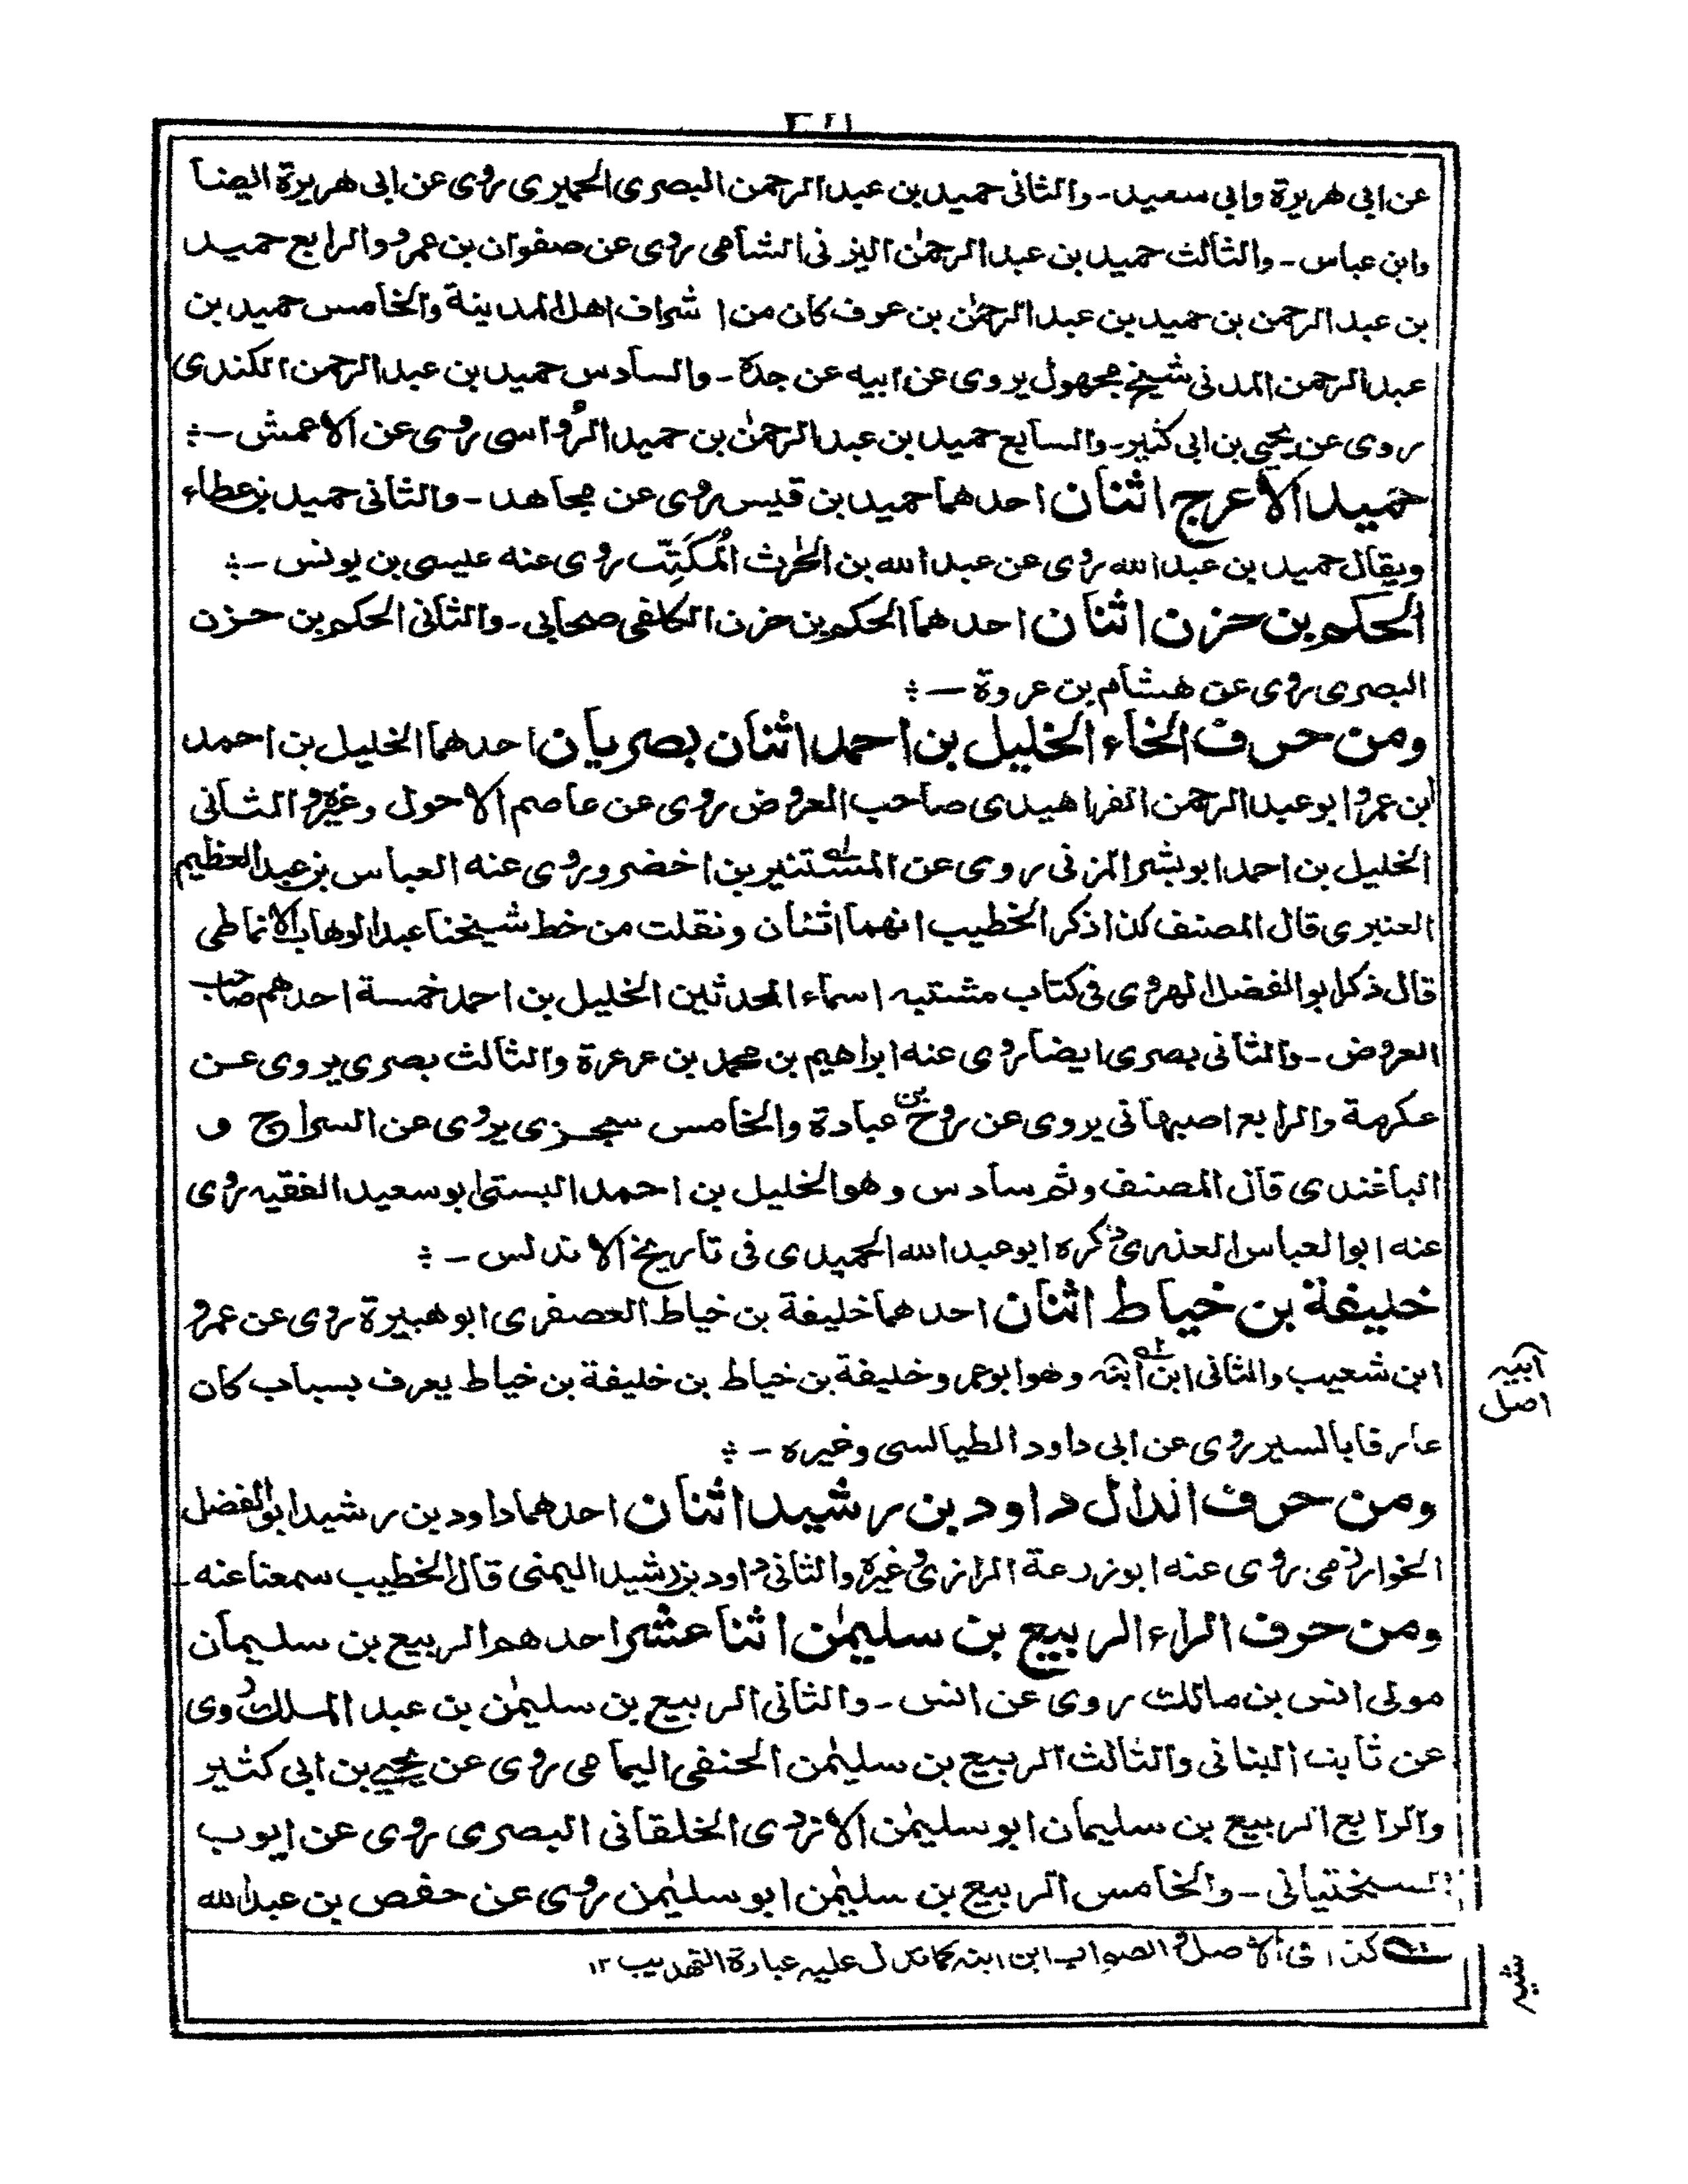 عن ابي هريرة وابي سعيد ـ والثاني حميد بن عبد الرحمن البصري الحميري روى عن ابي هريرة ايضا
وابن عباس ـ والثالث حميد بن عبد الرحمٰن اليزني الشامي روى عن صفوان بن عمرو والرابع حميد
بن عبد الرحمن بن حميد بن عبد الرحمٰن بن عوف كان من اشراف اهل المدينة والخامس حميد بن
عبد الرحمن المدني شيخ مجهول يروى عن ابيه عن جده ـ والسادس حميد بن عبد الرحمن الكندى
روى عن يحيى بن ابي كثير ـ والسابع حميد بن عبد الرحمٰن بن حميد الرُواسى روى عن الاعمش ـ
حميد الاعرج اثنان احدهما حميد بن قيس روى عن مجاهد ـ والثاني حميد بن عطاء
ويقال حميد بن عبد الله روى عن عبد الله بن الحٰرث المُكَتِّب روى عنه عيسى بن يونس ـ
الحكم بن حزن اثنان احدهما الحكم بن حزن الكلفي صحابي ـ والثاني الحكم بن حزن
البصرى روى عن هشام بن عروة ـ
ومن حرف الخاء الخليل بن احمد اثنان بصريان احدهما الخليل بن احمد
ابن عمرو ابو عبد الرحمن الفراهيدى صاحب العروض روى عن عاصم الاحول وغيره والثاني
الخليل بن احمد ابو بشر المزني روى عن المستنير بن اخضر وروى عنه العباس بن عبد العظيم
العنبرى قال المصنف كذا ذكر الخطيب انهما اثنان ونقلت من خط شيخنا عبد الوهاب الانماطي
قال ذكر ابو الفضل الهروى في كتاب مشتبه اسماء المحدثين الخليل بن احمد خمسة احدهم صاحب
العروض ـ والثاني بصرى ايضا روى عنه ابراهيم بن محمد بن عرعرة والثالث بصرى يروى عن
عكرمة والرابع اصبهاني يروى عن روح بن عبادة والخامس سجزى يروى عن السراج و
الباغندى قال المصنف وثم سادس وهو الخليل بن احمد البستى ابو سعيد الفقيه روى
عنه ابو العباس العذرى ذكره ابو عبد الله الحميدى في تاريخ الاندلس ـ
خليفة بن خياط اثنان احدهما خليفة بن خياط العصفرى ابو هبيرة روى عن عمرو
ابن شعيب والثاني ابن ابنه وهو ابو عمرو خليفة بن خياط بن خليفة بن خياط يعرف بسباب كان
عارفا بالسير روى عن ابي داود الطيالسى وغيره ـ
ابيه
اصل
ومن حرف الدال داود بن رشيد اثنان احدهما داود بن رشيد ابو الفضل
الخوارزمي روى عنه ابو زرعة الرازى وغيره والثاني داود بن رشيد اليمنى قال الخطيب سمعنا عنه ـ
ومن حرف الراء الربيع بن سليمٰن اثنا عشر احدهم الربيع بن سليمان
مولى انس بن مالك روى عن انس ـ والثاني الربيع بن سليمٰن بن عبد الملك روى
عن ثابت البناني والثالث الربيع بن سليمٰن الحنفي اليمامي روى عن يحيى بن ابي كثير
والرابع الربيع بن سليمان ابو سليمٰن الازدى الخلقاني البصرى روى عن ايوب
السختياني ـ والخامس الربيع بن سليمٰن ابو سليمٰن روى عن حفص بن عبد الله
كذا في الاصل والصواب ابن ابنه كما تدل عليه عبارة التهذيب ١٢